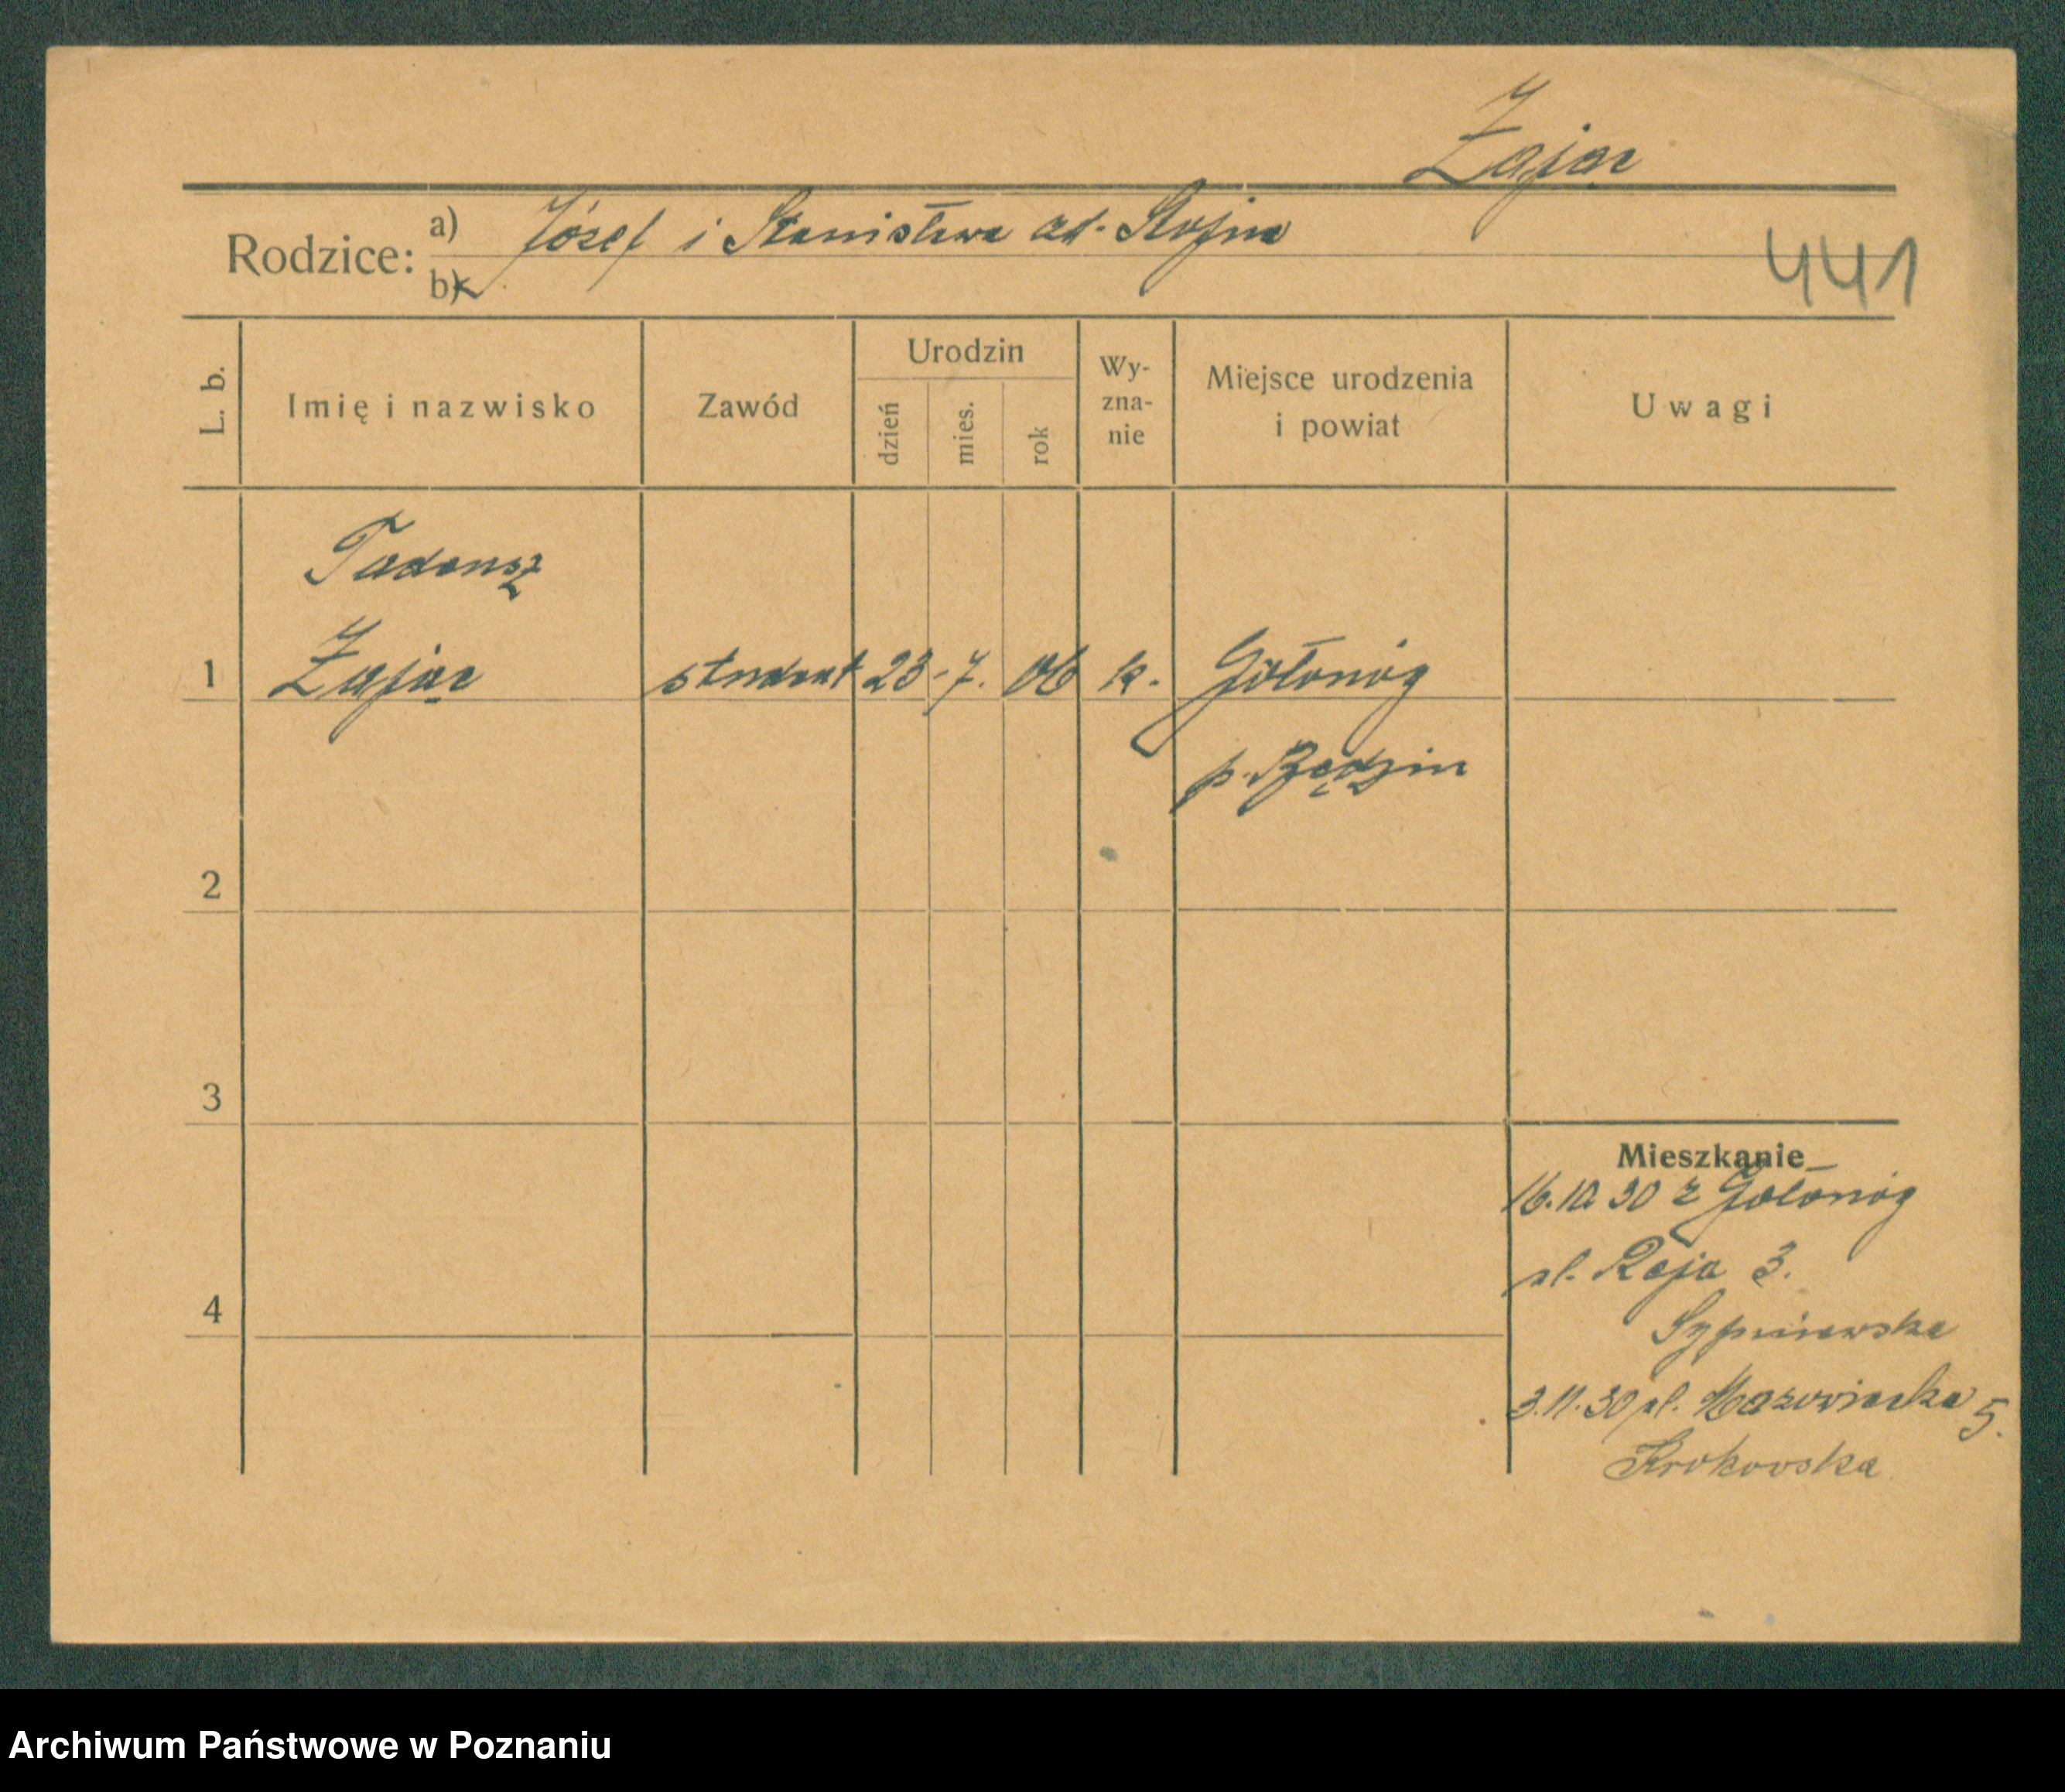 Zając
Rodzice: a) Józef i Stanisława zd. Stojna
b)
441
L. b.
Imię i nazwisko
Zawód
Urodzin
dzień
mies.
rok
Wy-
zna-
nie
Miejsce urodzenia
i powiat
Uwagi
Tadeusz
1 Zając student 23-7. 06 k. Gołonóg
p. Będzin
2
3
4
Mieszkanie
16.10 30 z Gołonóg
ul. Reja 3.
Sypniewska
3.11.30 ul. Mazowiecka 5.
Krokowska
Archiwum Państwowe w Poznaniu